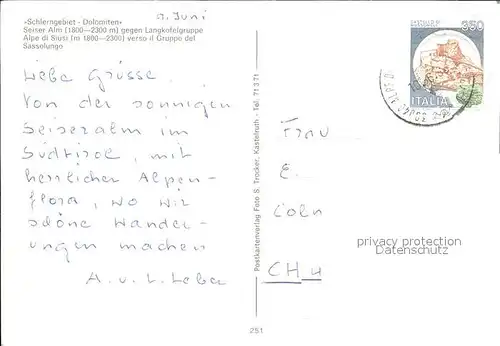 9. Juni
«Schlerngebiet - Dolomiten»
Seiser Alm (1800—2300 m) gegen Langkofelgruppe
Alpe di Siusi (m 1800—2300) verso il Gruppo del
Sasselungo
Liebe Grüsse.
Von der sonnigen
Seiseralm im
Südtirol, mit
herrlicher Alpen-
flora, wo wir
schöne Wander-
ungen machen
A. u. L. Leber
Postkartenverlag Foto S. Trocker, Kastelruth - Tel. 71371
251
350
ITALIA
Frau
E.
Cöln
CH 4
privacy protection
Datenschutz